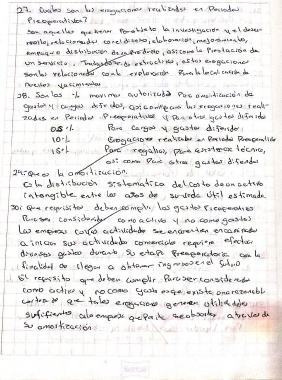 27. Cuales son las erogaciones realizadas en Periodos
Preoperativos?
Son aquellas que tienen Por objeto la investigación y el desa-
rrollo, relacionados con el diseño, elaboración, mejoramiento,
empaque o distribución de un producto, así como la Prestación de
un servicio. Tratandose de extractivas, estas erogaciones
son las relacionadas con la exploración Para la localización de
nuevos yacimientos.
28. Son los % maximos autorizado Por amortización de
gastos y cargos diferidos, así como para las erogaciones reali-
zadas en Periodos Preoperativos y Por otros gastos diferidos
05% Para cargos y gastos diferidos
10% Erogaciones realizadas en Periodo Preoperativo
15% Para regalías, Para asistencia técnica,
así como Para otros gastos diferidos
29: Que es la amortización:
Es la distribución sistematica del costo de un activo
intangible entre los años de su vida útil estimada.
30: que requisito deben cumplir los gastos Preoperativos
Para ser considerados como activo y no como gastos
Las empresas cuyas actividades se encuentren encaminadas
a iniciar sus actividades comerciales requiere efectuar
diversos gastos durante su etapa Preoperatoria con la
finalidad de llegar a obtener ingresos en el futuro
El requisito que deben cumplir Para ser considerados
como activo y no como gasto es que exista una razonable
certeza de que tales erogaciones generen utilidades
suficientes a la empresa que permite ser absorbidas a traves de
su amortización.